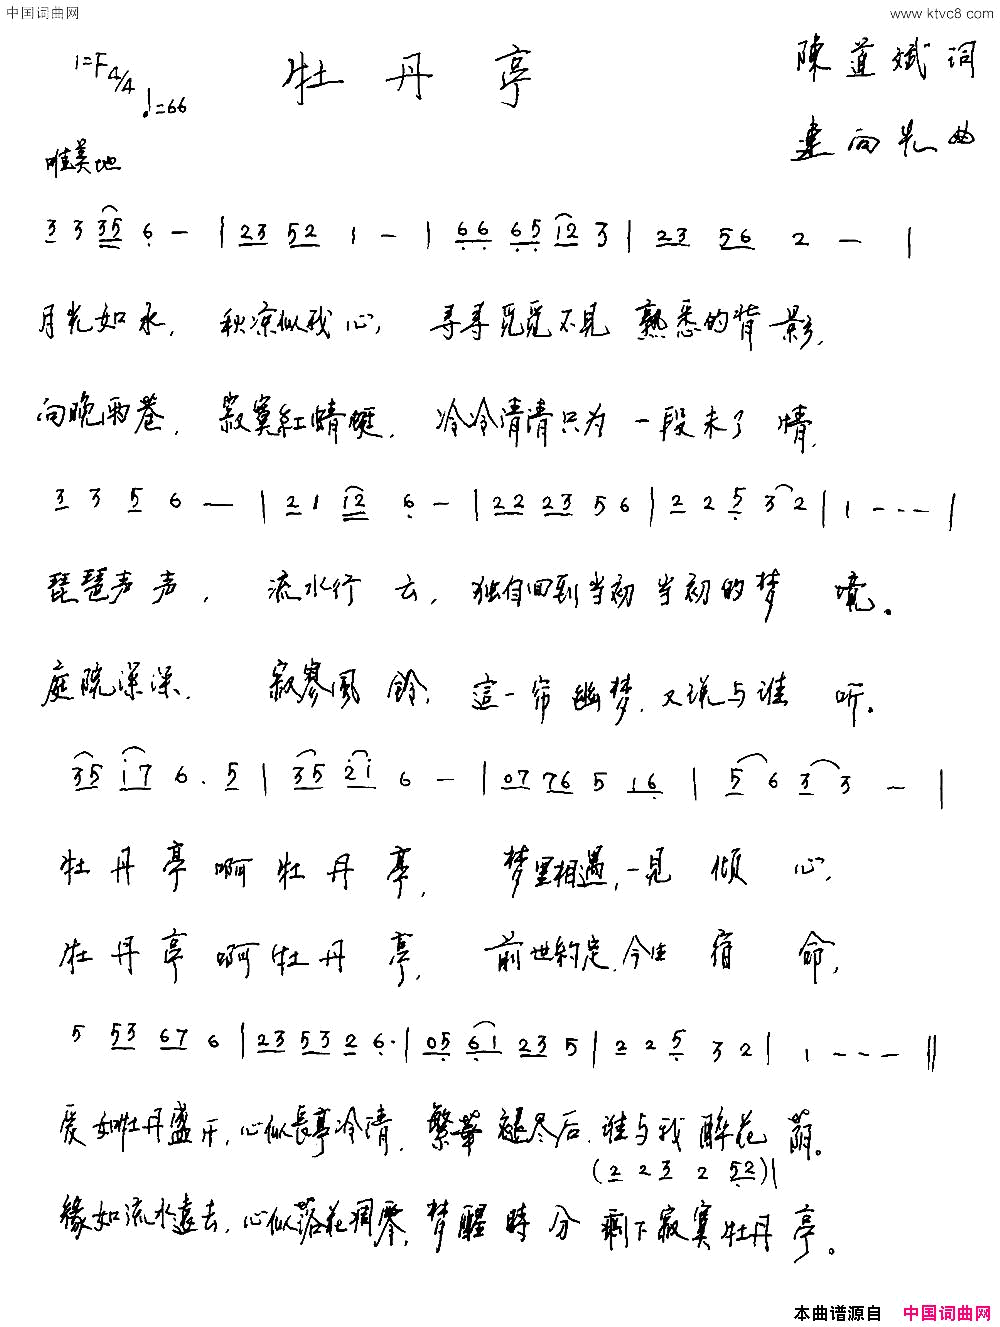 中国词曲网 www.ktvc8.com
1=F 4/4 ♩=66 牡丹亭 陳道斌词
唯美地 曲
3 3 35 6 - | 23 52 1 - | 66 65 12 3 | 23 56 2 - |
月光如水, 秋凉似我心, 寻寻觅觅不见 熟悉的背影,
向晚雨巷, 寂寞紅蜻蜓, 冷冷清清只为 一段未了情,
3 3 5 6 - | 2 1 12 6 - | 22 23 5 6 | 2 2 5 3 2 | 1 - - - |
琵琶声声, 流水行云, 独自回到当初 当初的梦境。
庭院深深. 寂寥風鈴, 這一帘幽梦, 又说与谁听。
35 17 6. 5 | 35 21 6 - | 07 76 5 16 | 5 6 3 3 - |
牡丹亭啊牡丹亭, 梦里相遇,一見倾心,
牡丹亭啊牡丹亭, 前世約定,今生宿命,
5 53 67 6 | 23 53 2 6. | 05 61 23 5 | 2 2 5 3 2 | 1 - - - ‖
爱如牡丹盛开,心似長亭冷清, 繁華褪尽后,谁与我醉花蔭。
(2 2 3 2 52) |
緣如流水遠去,心似落花凋零,梦醒時分 剩下寂寞牡丹亭。
本曲谱源自 中国词曲网